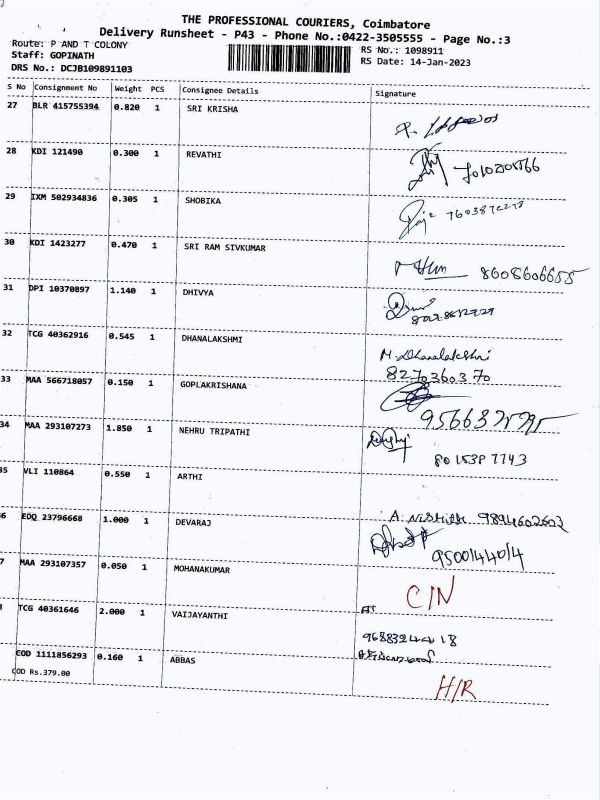 THE PROFESSIONAL COURIERS, Coimbatore
Delivery Runsheet - P43 - Phone No.:0422-3505555 - Page No.:3
Route: P AND T COLONY
Staff: GOPINATH
DRS No.: DCJB109891103
RS No.: 1098911
RS Date: 14-Jan-2023
S No Consignment No Weight PCS Consignee Details Signature
27 BLR 415755394 0.820 1 SRI KRISHA
28 KDI 121490 0.300 1 REVATHI
29 IXM 502934836 0.305 1 SHOBIKA
30 KDI 1423277 0.470 1 SRI RAM SIVKUMAR 8608606655
31 DPI 10370897 1.140 1 DHIVYA
32 TCG 40362916 0.545 1 DHANALAKSHMI M. Dhanalakshmi
8270360370
33 MAA 566718057 0.150 1 GOPLAKRISHANA
34 MAA 293107273 1.850 1 NEHRU TRIPATHI 8015387743
35 VLI 110864 0.550 1 ARTHI A. 9894602602
6 EDQ 23796668 1.000 1 DEVARAJ 9500144014
7 MAA 293107357 0.050 1 MOHANAKUMAR C/N
TCG 40361646 2.000 1 VAIJAYANTHI
9688324418
COD 1111856293 0.160 1 ABBAS H/R
COD Rs.379.00